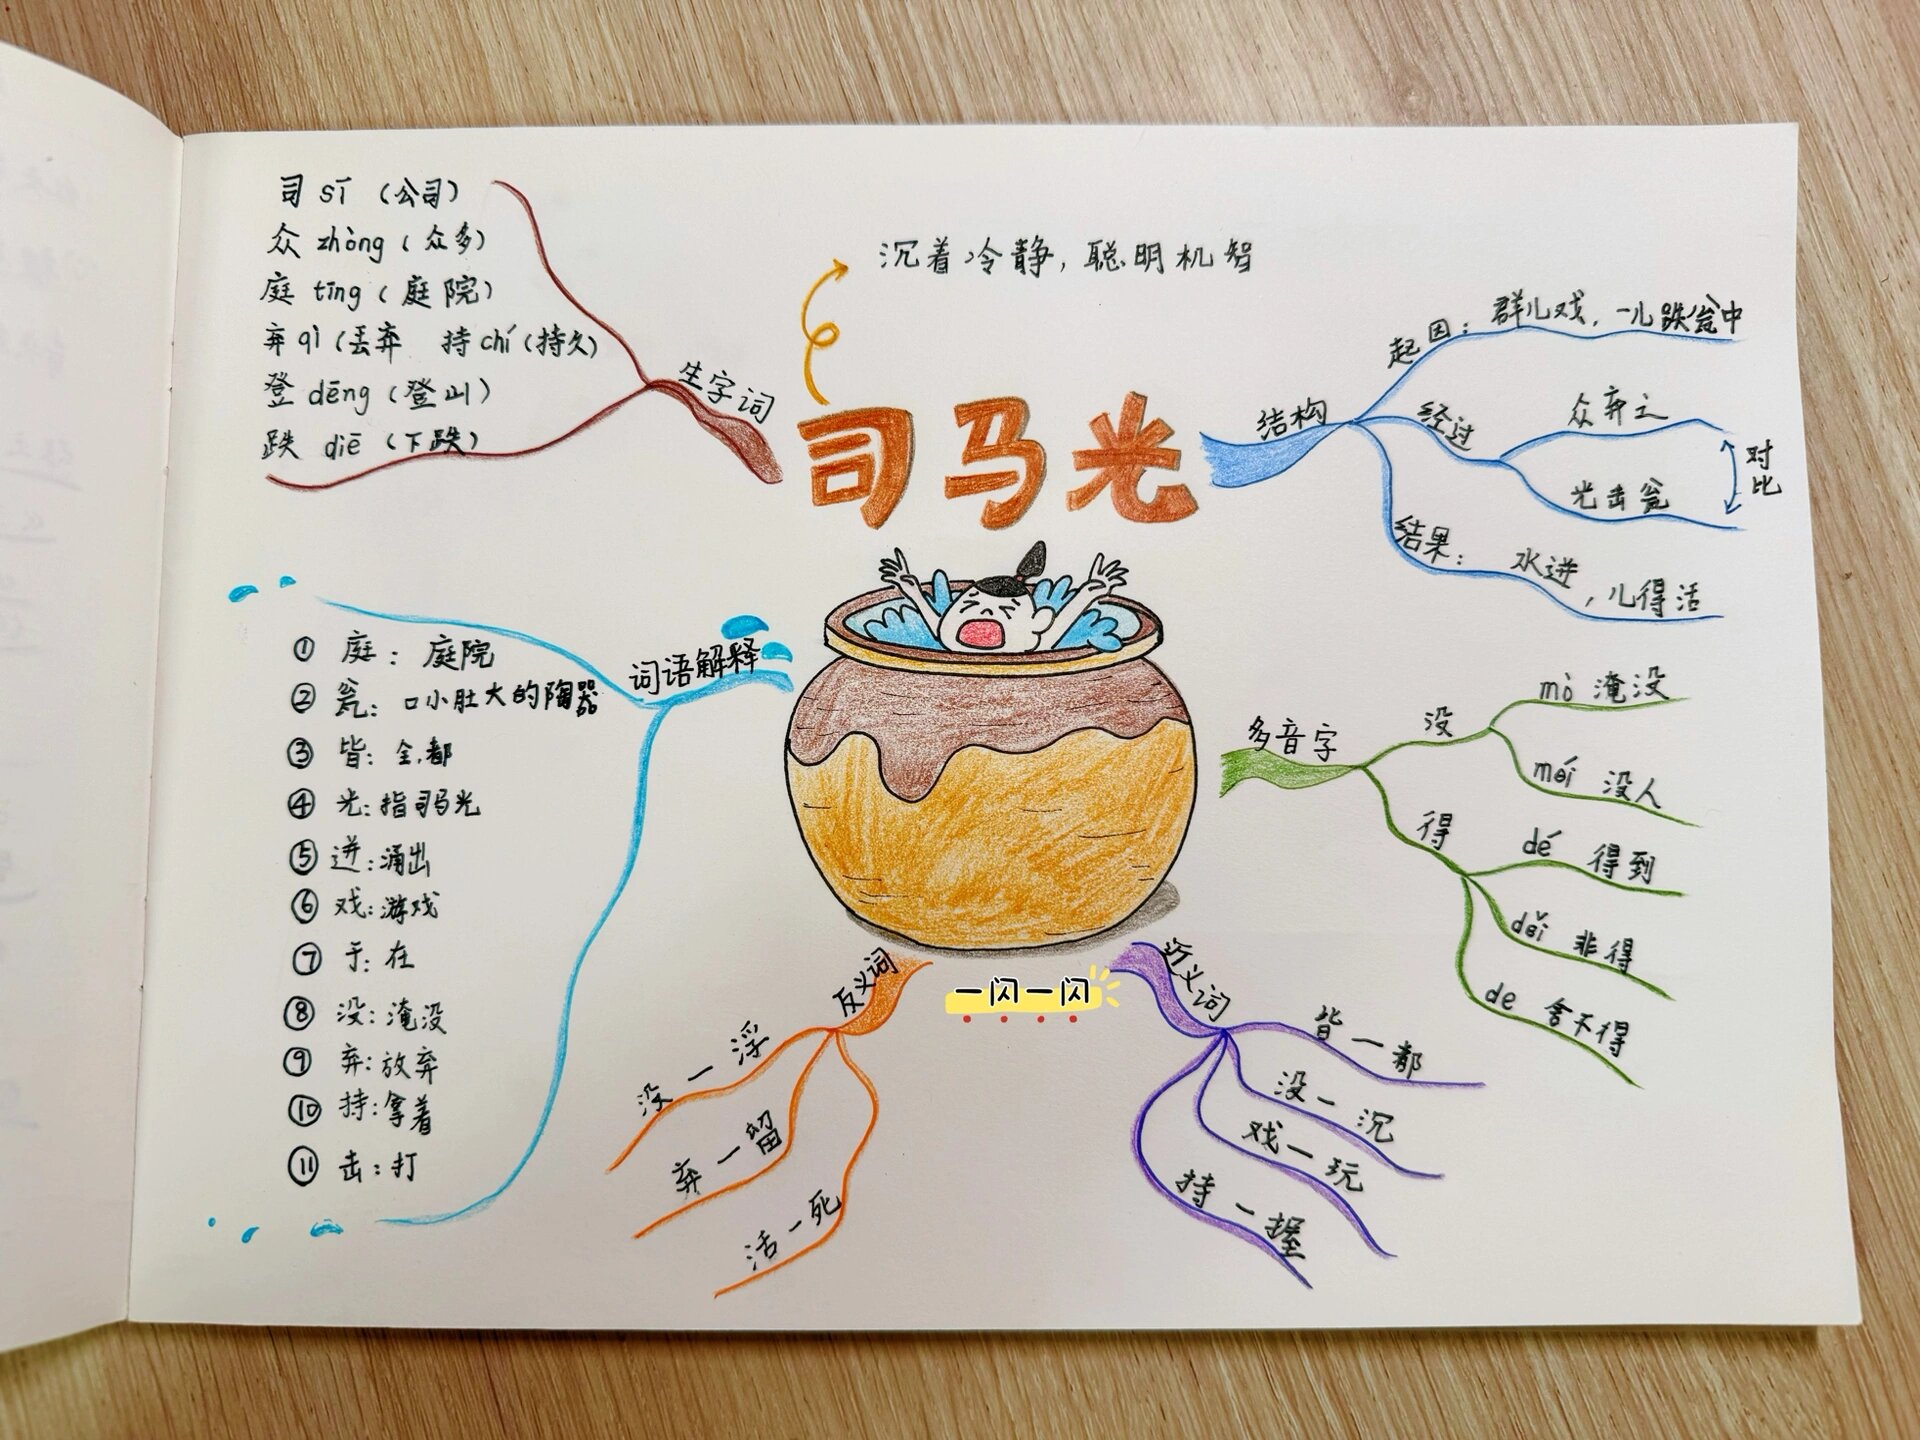 司 sī （公司）
众 zhòng（众多）
庭 tīng（庭院）
弃 qì（丢弃 持 chí（持久）
登 dēng（登山）
跌 diē （下跌）
生字词
沉着冷静，聪明机智
司马光
结构
起因：群儿戏，一儿跌瓮中
经过
众弃之
光击瓮
对比
结果：水迸，儿得活
词语解释
① 庭：庭院
② 瓮：口小肚大的陶器
③ 皆：全，都
④ 光：指司马光
⑤ 迸：涌出
⑥ 戏：游戏
⑦ 于：在
⑧ 没：淹没
⑨ 弃：放弃
⑩ 持：拿着
⑪ 击：打
多音字
没
mò 淹没
méi 没人
得
dé 得到
děi 非得
de 舍不得
反义词
没—浮
弃—留
活—死
一闪一闪
近义词
皆—都
没—沉
戏—玩
持—握